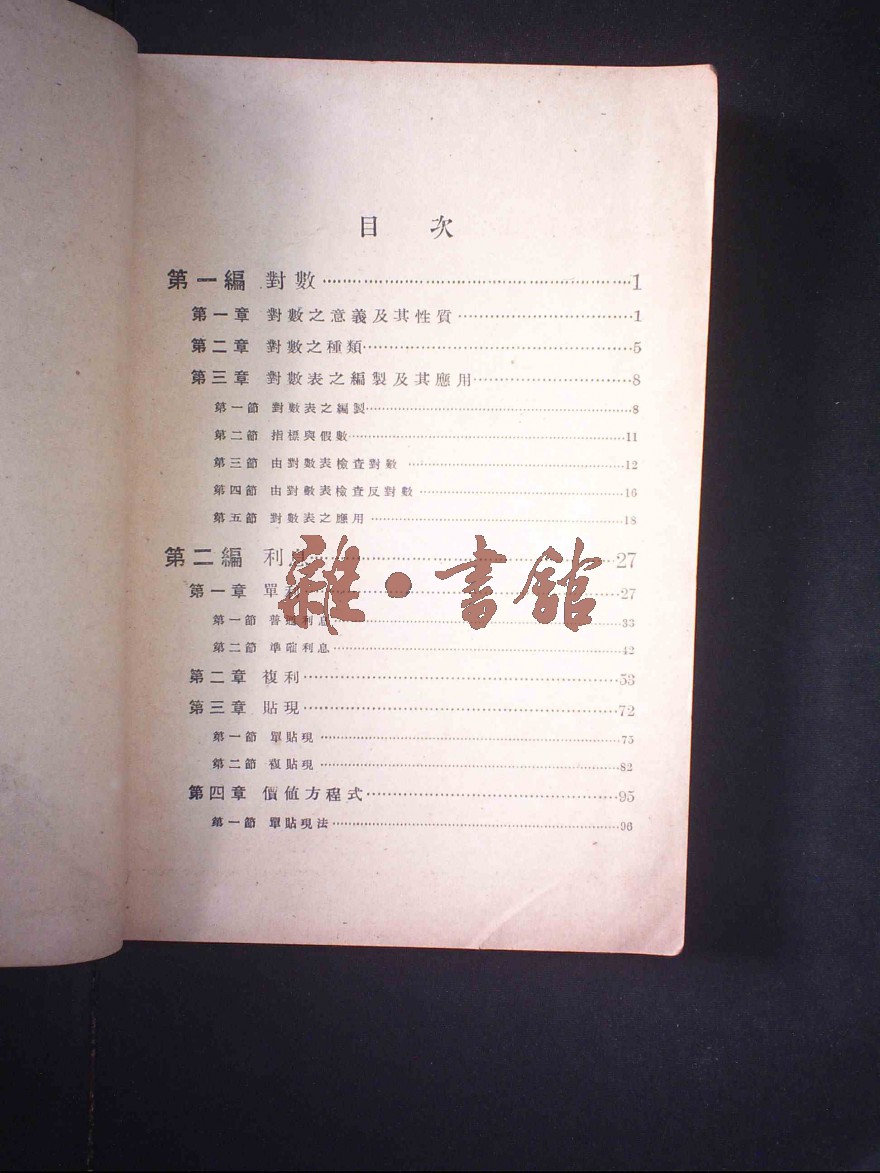 目 次
第一編 對數…………………………1
第一章 對數之意義及其性質…………………………1
第二章 對數之種類…………………………5
第三章 對數表之編製及其應用…………………………8
第一節 對數表之編製…………………………8
第二節 指標與假數…………………………11
第三節 由對數表檢查對數…………………………12
第四節 由對數表檢查反對數…………………………16
第五節 對數表之應用…………………………18
第二編 利息…………………………27
第一章 單利…………………………27
雜·書館
第一節 普通利息…………………………33
第二節 準確利息…………………………42
第二章 複利…………………………53
第三章 貼現…………………………72
第一節 單貼現…………………………75
第二節 複貼現…………………………82
第四章 價值方程式…………………………95
第一節 單貼現法…………………………96